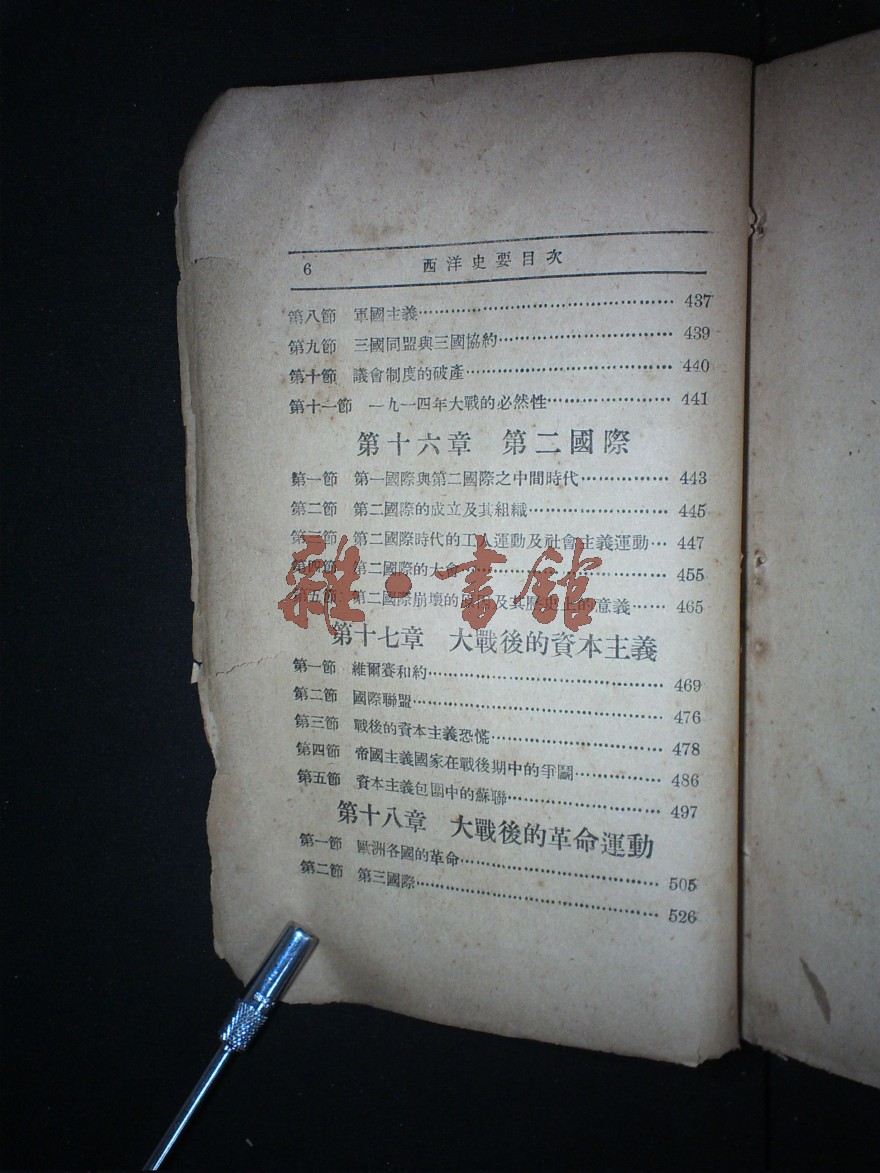 6 西洋史要目次
第八節 軍國主義………………………………………… 437
第九節 三國同盟與三國協約…………………………… 439
第十節 議會制度的破產………………………………… 440
第十一節 一九一四年大戰的必然性…………………… 441
第十六章 第二國際
第一節 第一國際與第二國際之中間時代……………… 443
第二節 第二國際的成立及其組織……………………… 445
第三節 第二國際時代的工人運動及社會主義運動… 447
第四節 第二國際的大會………………………………… 455
第五節 第二國際崩壞的原因及其歷史上的意義…… 465
雜·書館
第十七章 大戰後的資本主義
第一節 維爾賽和約……………………………………… 469
第二節 國際聯盟………………………………………… 476
第三節 戰後的資本主義恐慌…………………………… 478
第四節 帝國主義國家在戰後期中的爭鬬…………… 486
第五節 資本主義包圍中的蘇聯………………………… 497
第十八章 大戰後的革命運動
第一節 歐洲各國的革命………………………………… 505
第二節 第三國際………………………………………… 526